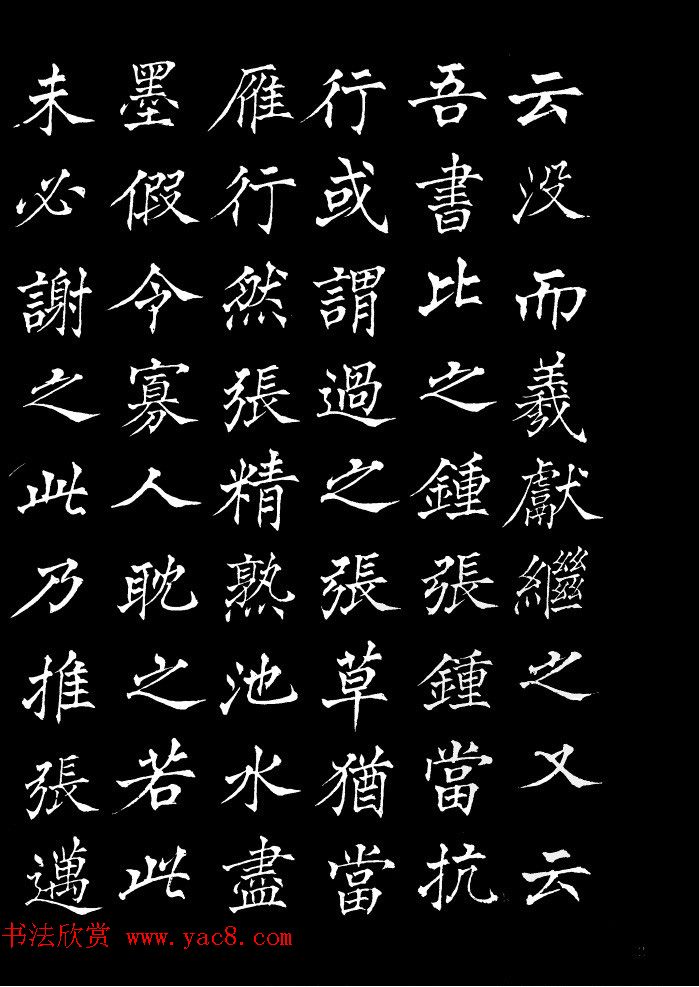 云没而羲獻繼之又云
吾書比之鍾張鍾當抗
行或謂過之張草猶當
雁行然張精熟池水盡
墨假令寡人耽之若此
未必謝之此乃推張邁
书法欣赏 www.yac8.com